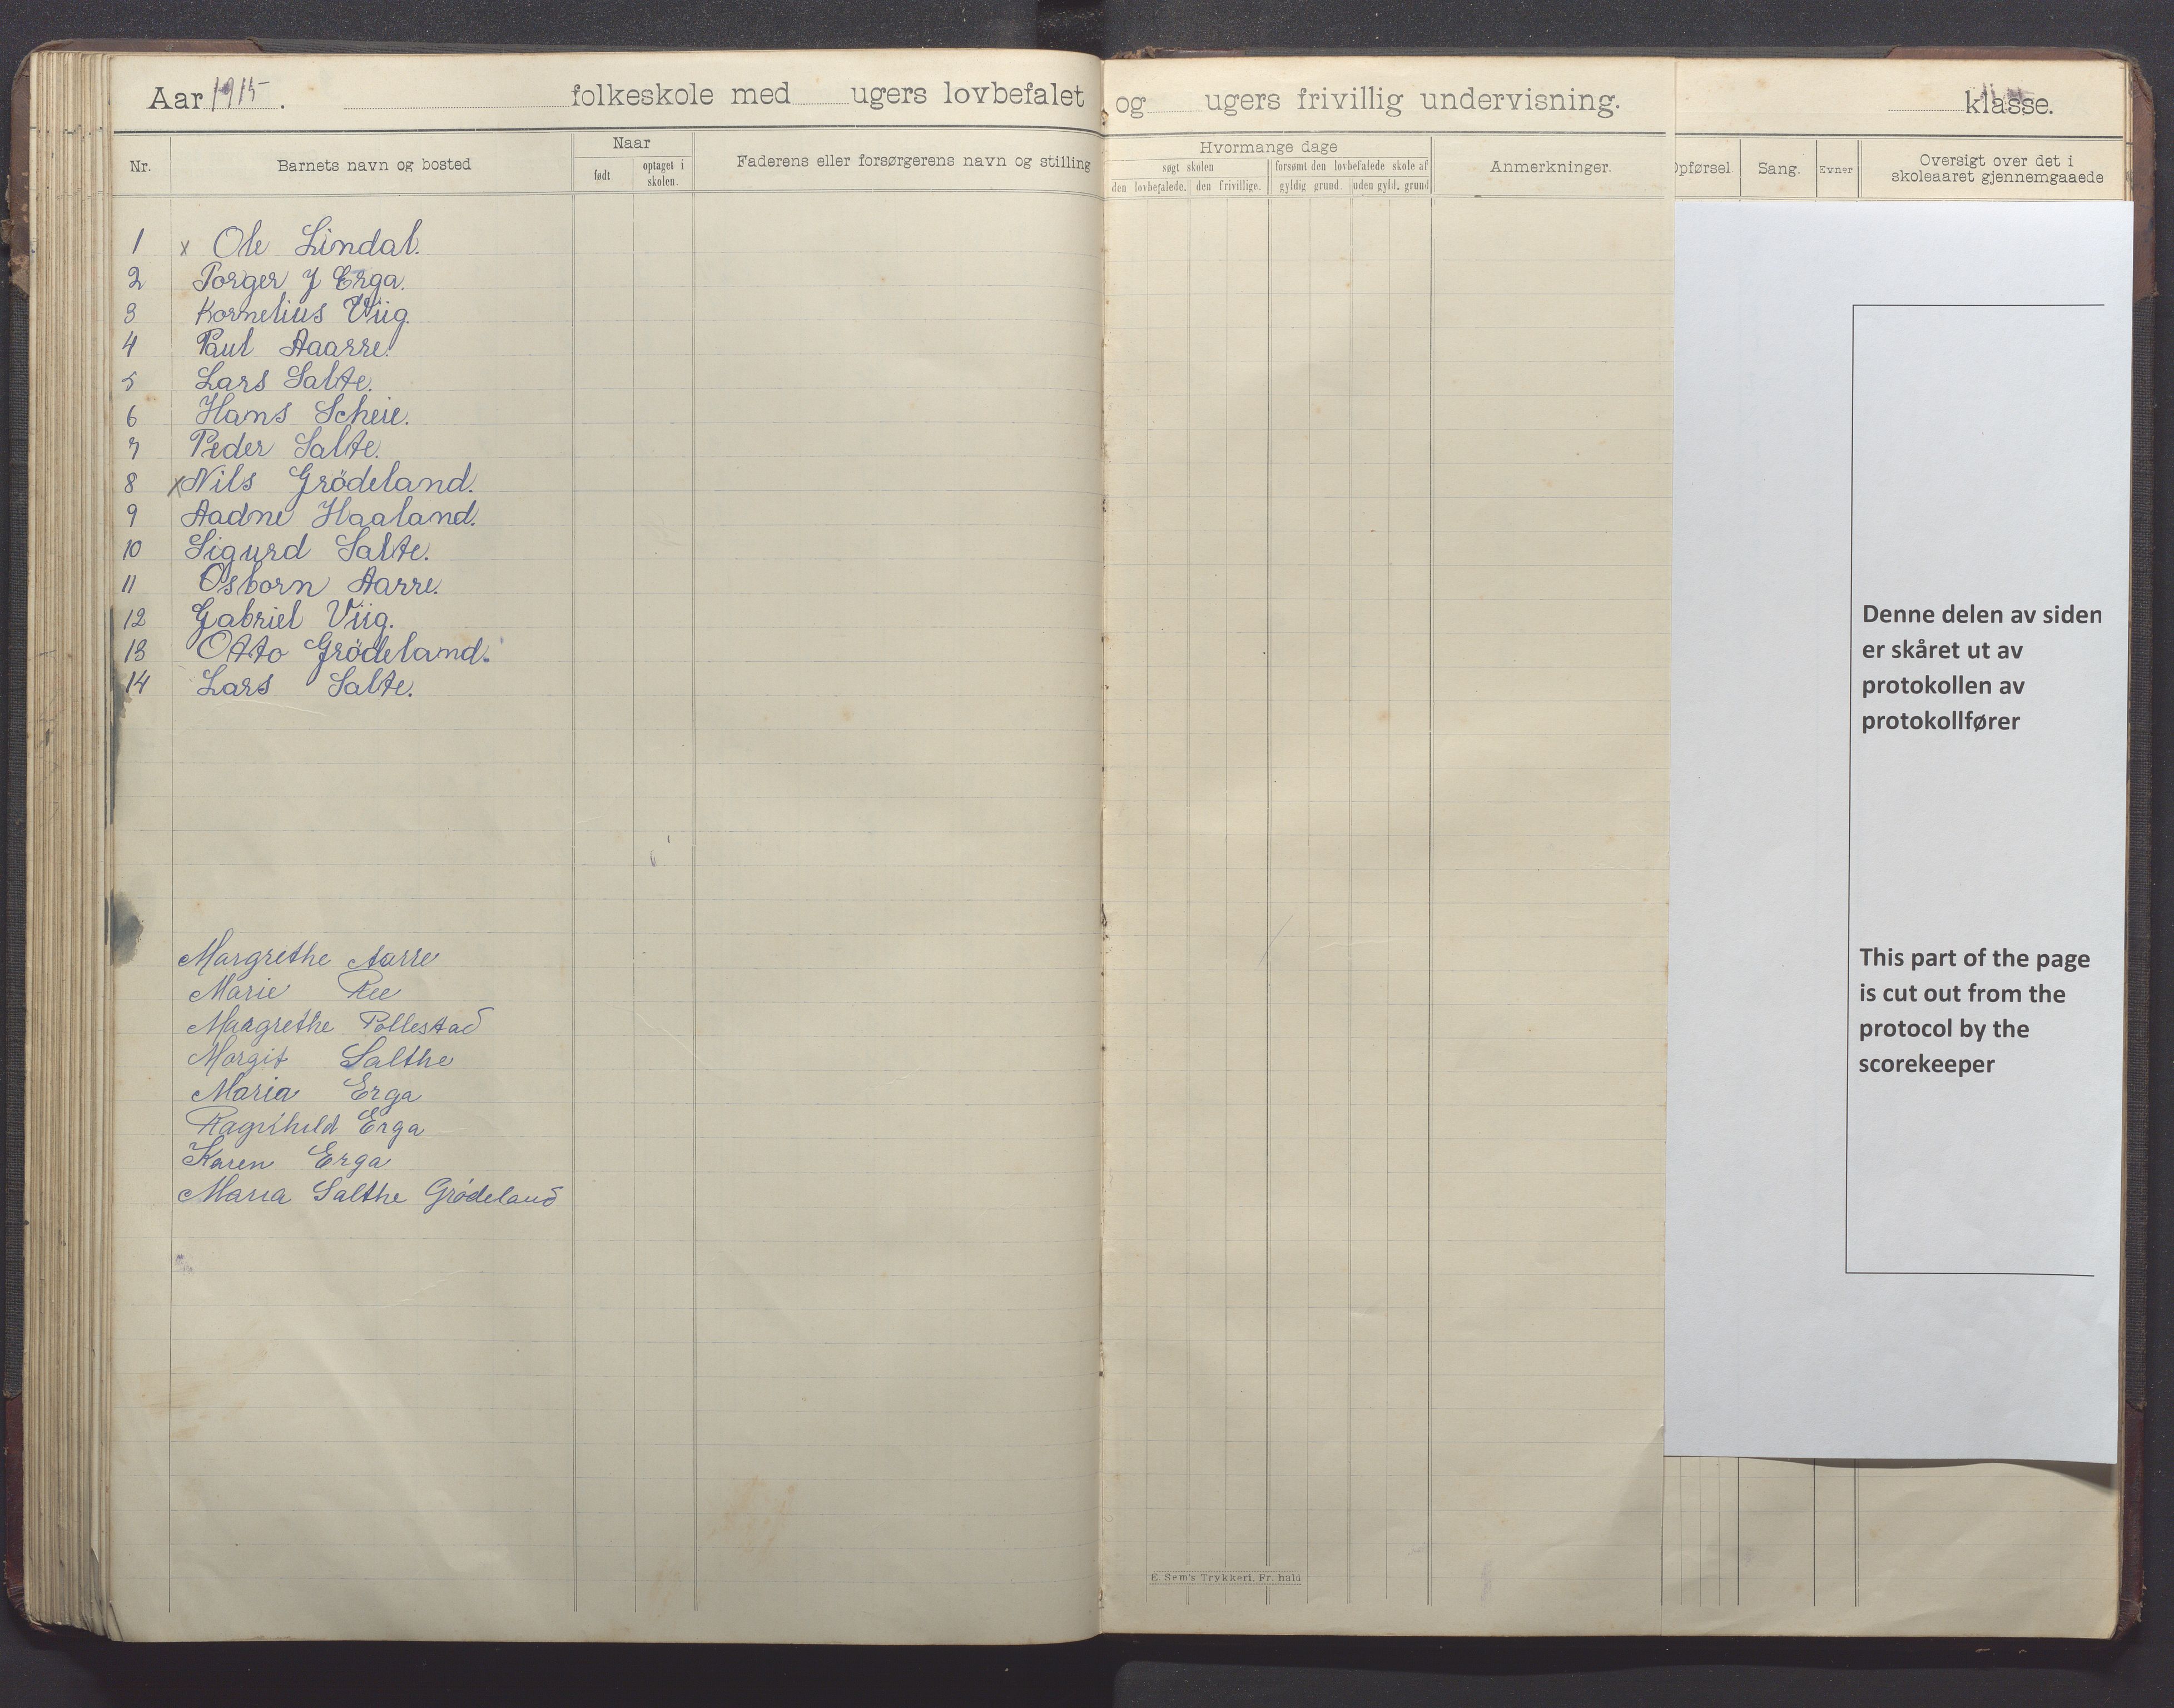 Aar 1915. folkeskole med ugers lovbefalet og ugers frivillig undervisning. klasse.
Nr.
Barnets navn og bosted
Naar
født
optaget i skolen.
Faderens eller forsørgerens navn og stilling
Hvormange dage
søgt skolen
forsømt den lovbefalede skole af
den lovbefalede.
den frivillige.
gyldig grund.
uden gyld. grund
Anmerkninger.
Opførsel.
Sang.
Evner
Oversigt over det i
skoleaaret gjennemgaaede
1 x Ole Lindal.
2 Torger J Erga.
3 Kornelius Viig.
4 Paul Aaarre.
5 Lars Salte.
6 Hans Scheie.
7 Peder Salte.
8 x Nils Grödeland.
9 Aadne Haaland.
10 Sigurd Salte.
11 Osborn Aarre.
12 Gabriel Viig.
13 Otto Grödeland.
14 Lars Salte.
Margrethe Aarre
Marie Ree
Margrethe Pollestad
Margit Salthe
Maria Erga
Ragnhild Erga
Karen Erga
Maria Salthe Grödeland
E. Sem's Trykkeri, Fr. hald
Denne delen av siden
er skåret ut av
protokollen av
protokollfører
This part of the page
is cut out from the
protocol by the
scorekeeper